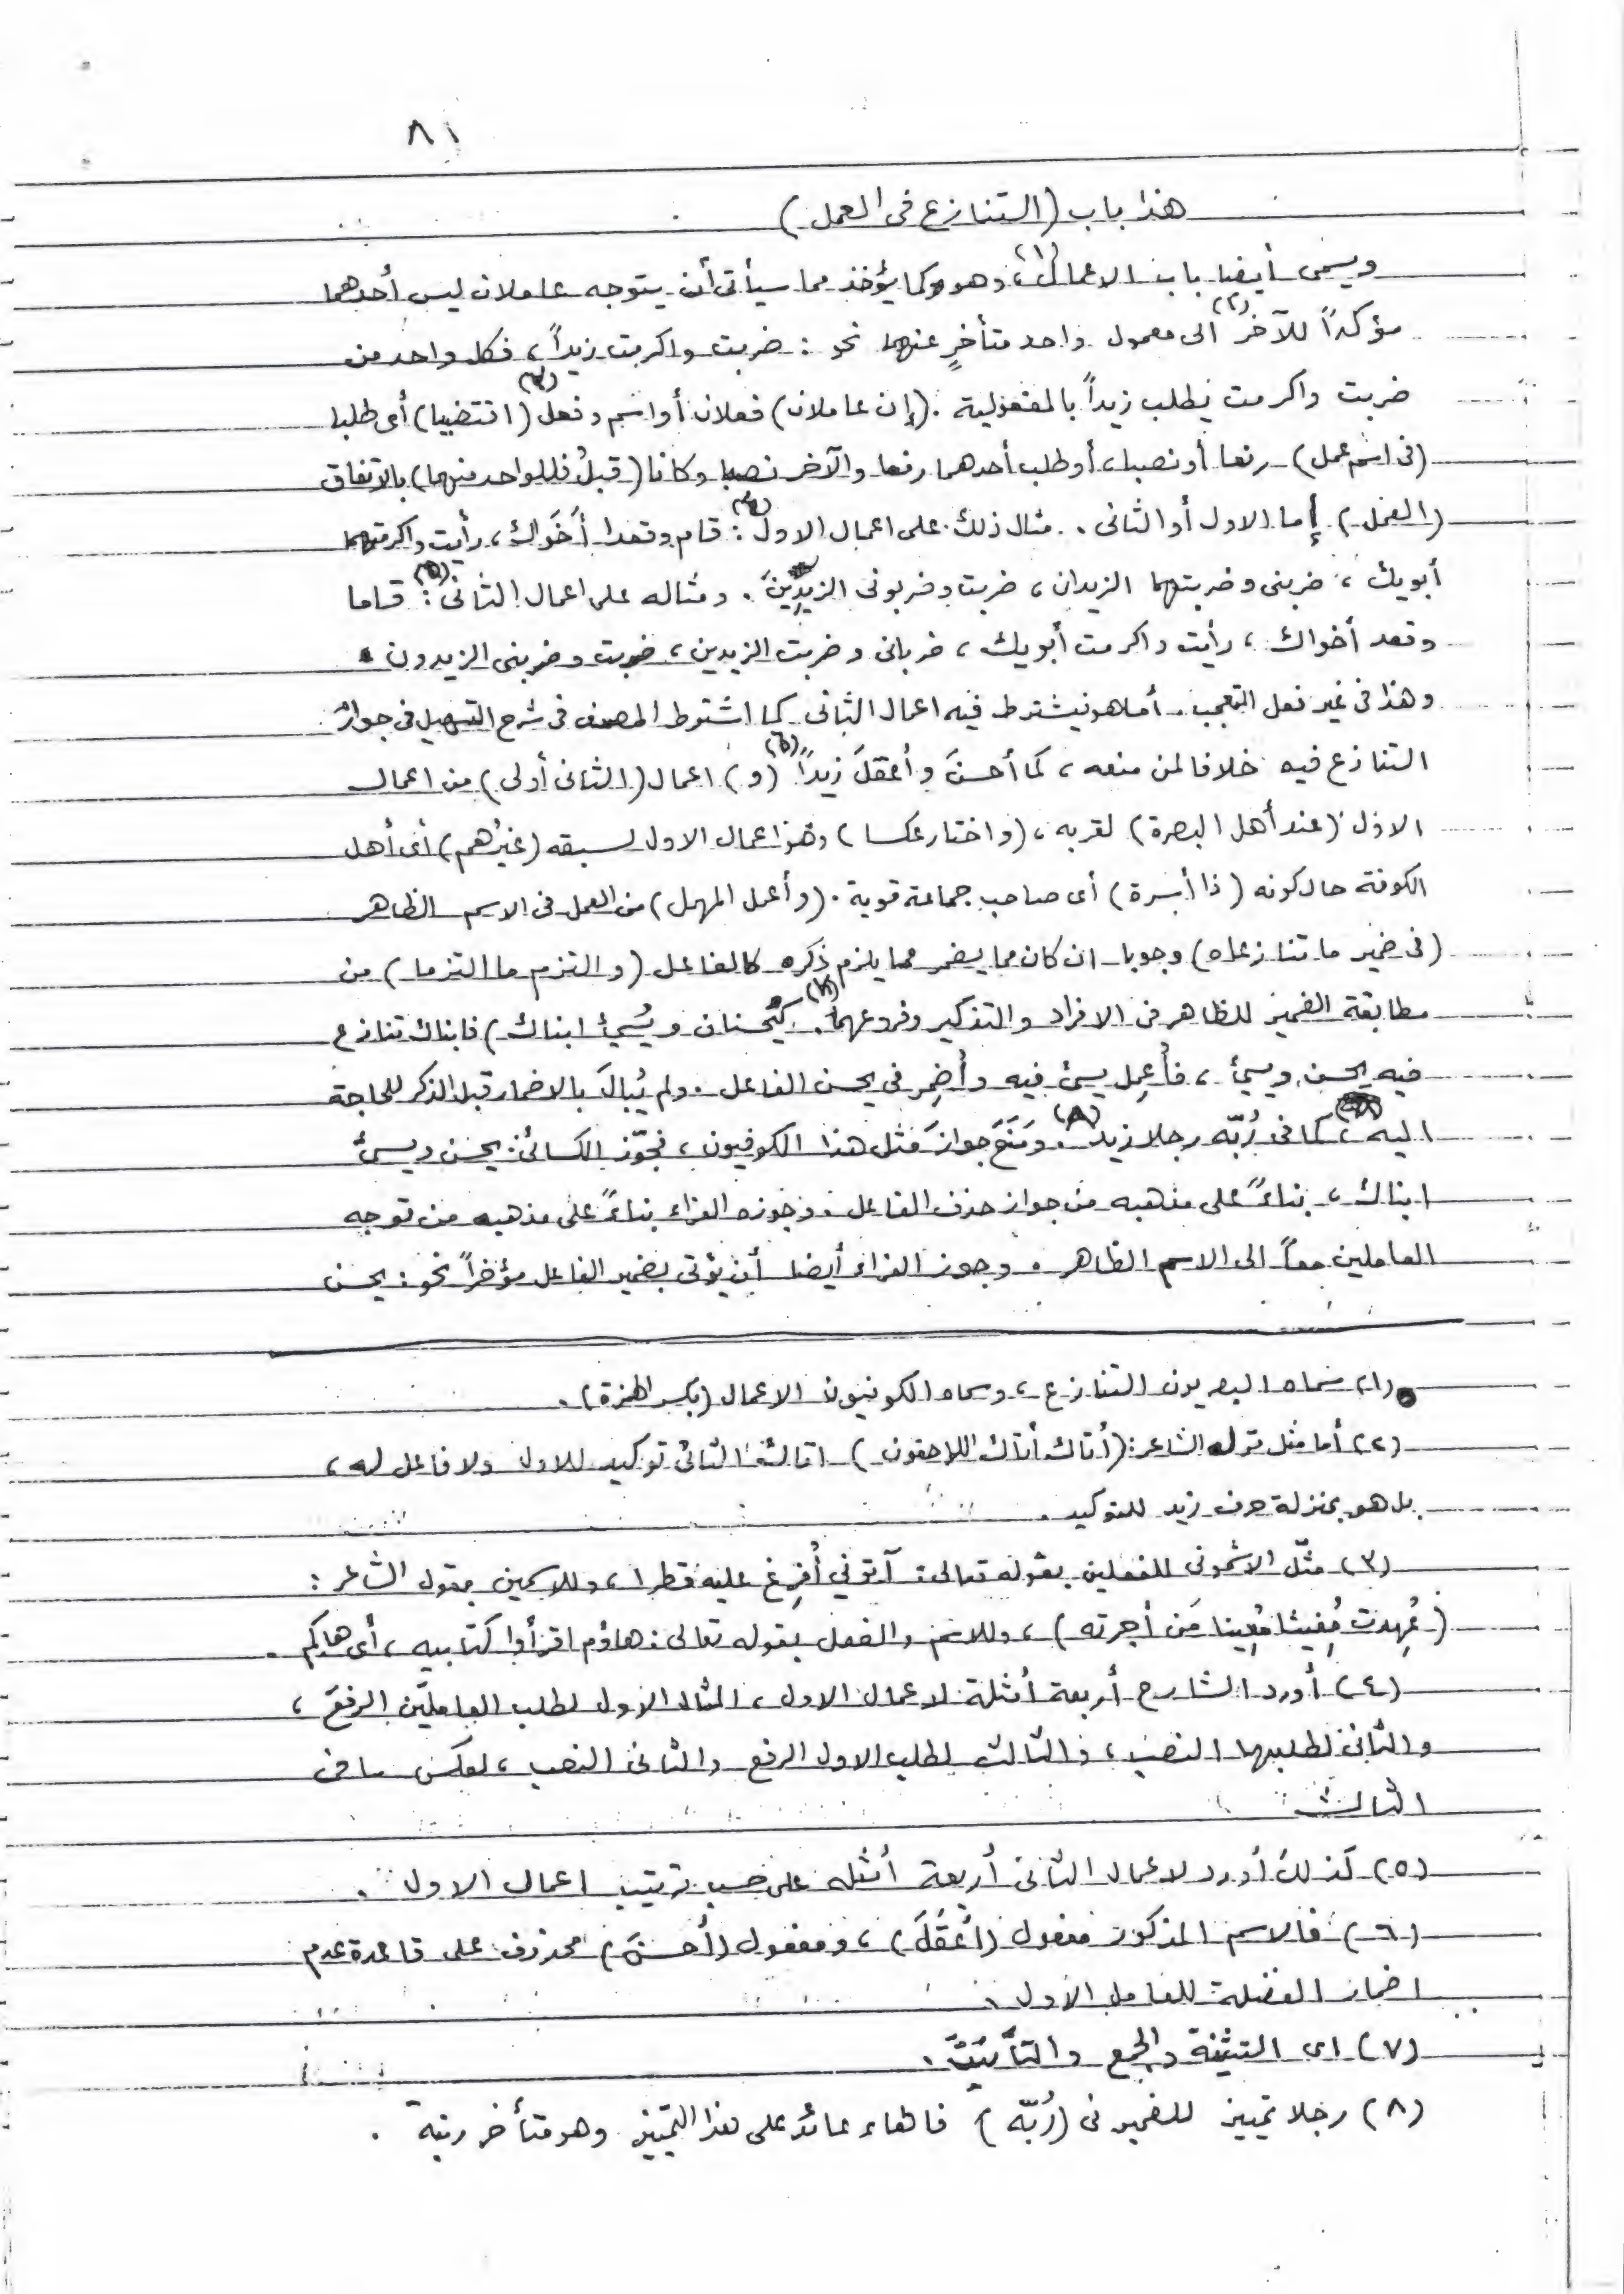 ٨١
هذا باب (التنازع فى العمل)
ويسمى أيضا باب الاعمال(١)، وهو كما يؤخذ مما سيأتى أن يتوجه عاملان ليس أحدهما
مؤكداً للآخر(٢) الى معمول واحد متأخرٍ عنهما نحو : ضربت واكرمت زيداً ، فكل واحد من
ضربت واكرمت يطلب زيداً بالمفعولية . (إن عاملان) فعلان أو اسم وفعل(٣) (اقتضيا) أى طلبا
(فى اسم عمل) رفعا أو نصبا ، أو طلب أحدهما رفعا والآخر نصبا وكانا (قبلُ فللواحد منهما) بالاتفاق
(العمل) إما الاول أو الثانى . مثال ذلك على اعمال الاول(٤) : قام وقعدا أَخَواك ، رأيت واكرمتهما
أبويك ، ضربنى وضربتهما الزيدان ، ضربت وضربونى الزيدِينَ . ومثاله على اعمال الثانى(٥) : قاما
وقعد أخواك ، رأيت واكرمت أبويك ، ضربانى وضربت الزيدين ، ضربت وضربنى الزيدون .
وهذا فى غير فعل التعجب . أما هو فيشترط فيه اعمال الثانى كما اشترط المصنف فى شرح التسهيل فى جواز
التنازع فيه خلافا لمن منعه ، كما أحسنَ وأعقلَ زيداً(٦) (و) اعمال (الثانى أولى) من اعمال
الاول (عند أهل البصرة) لقربه ، (واختار عكسا) وهو اعمال الاول لسبقه (غيرُهم) أى أهل
الكوفة حال كونه (ذا أسرة) أى صاحب جماعة قوية . (وأعمل المهمل) من العمل فى الاسم الظاهر
(فى ضمير ما تنازعاه) وجوبا ان كان مما يضمر مما يلزم ذكره كالفاعل (والتزم ما التزما) من
مطابقة الضمير للظاهر فى الافراد والتذكير وفروعهما(٧) . (كيُحسنان ويُسيئ ابناك) فابناك تنازع
فيه يحسن ويسيئ ، فأُعمِل يسيئ فيه وأضمِر فى يحسن الفاعل . ولم يُبالَ بالاضمار قبل الذكر للحاجة
اليه ، كما فى رُبّه رجلا زيد(٨) . ومَنَعَ جوازَ مثل هذا الكوفيون ، فجوّز الكسائى : يحسن ويسيئ
ابناك ، بناءً على مذهبه من جواز حذف الفاعل . وجوزه الفراء بناءً على مذهبه من توجه
العاملين معاً الى الاسم الظاهر . وجوز الفراء أيضا أن يؤتى بضمير الفاعل مؤخراً نحو : يحسن
(١) سماه البصريون التنازع ، وسماه الكوفيون الاعمال (بكسر الهمزة) .
(٢) أما مثل قول الشاعر : (أتاك أتاك اللاحقون) اتاك الثانى توكيد للاول ولا فاعل له ،
بل هو بمنزلة حرف زيد للتوكيد .
(٣) مثّل الاشمونى للفعلين بقوله تعالى : آتونى أُفرِغ عليه قطرا ، وللاسمين بقول الشاعر :
(عُهِدت مُغيثا مُغنِيا مَن أجرته) ، وللاسم والفعل بقوله تعالى : هاؤم اقرأوا كتابيه ، أى هاكم .
(٤) أورد الشارح أربعة أمثلة لاعمال الاول ، المثال الاول لطلب العاملَين الرفعَ ،
والثانى لطلبهما النصب ، والثالث لطلب الاول الرفع والثانى النصب ، لعكس ما فى
الثالث
(٥) كذلك أورد لاعمال الثانى أربعة أمثله على حسب ترتيب اعمال الاول .
(٦) فالاسم المذكور مفعول (أَعْقَلَ) ، ومفعول (أحسنَ) محذوف على قاعدة عدم
اضمار الفضلة للعامل الاول .
(٧) اى التثنية والجمع والتأنيث .
(٨) رجلا تمييز للضمير فى (رُبّه) فالهاء عائد على هذا التمييز وهو متأخر رتبة .